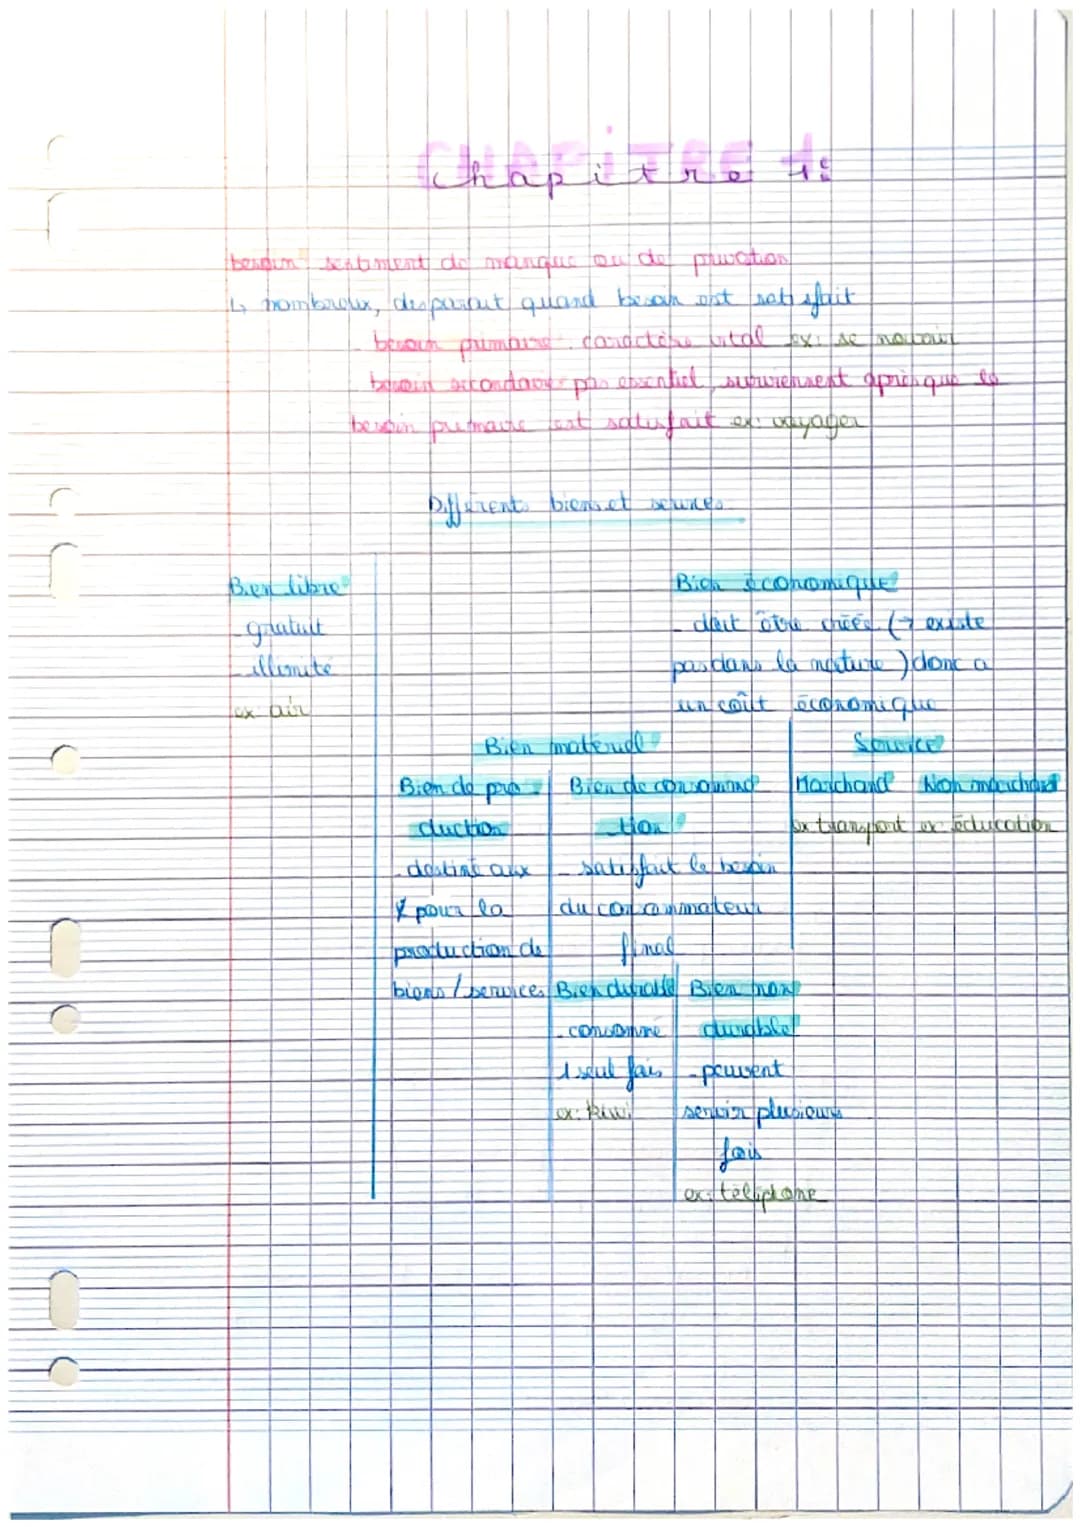 Chapitre 1:
besoin: sentiment de manque ou de privation
↳ nombreux, disparait quand besoin est satisfait
besoin primaire: caractère vital ex: se nourrir
besoin secondaire: pas essentiel, surviennent après que le
besoin primaire est satisfait ex: voyager
Différents biens et services
Bien libre:
- gratuit
- illimité
ex: air
Bien économique:
- doit être créée (→ existe
pas dans la nature) donc a
un coût économique
Bien matériel:
Service:
Bien de pro-
duction
- destiné aux
pour la
production de
biens / services
Bien de consomma
tion:
- satisfait le besoin
du consommateur
final
Marchand
ex transport
Non marchand
ex éducation
Bien durable
- consommé
1 seul fois
ex: kiwi
Bien non
durable:
- peuvent
servir plusieurs
fois
ex: téléphone